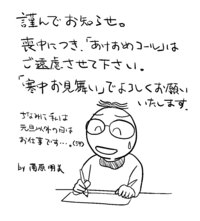 謹んでお知らせ。
喪中につき、「あけおめコール」は
ご遠慮させて下さい。
「寒中お見舞い」でよろしくお願い
いたします.
ちなみに私は
元旦以外の日は
お仕事です…。
by 蒲原明美